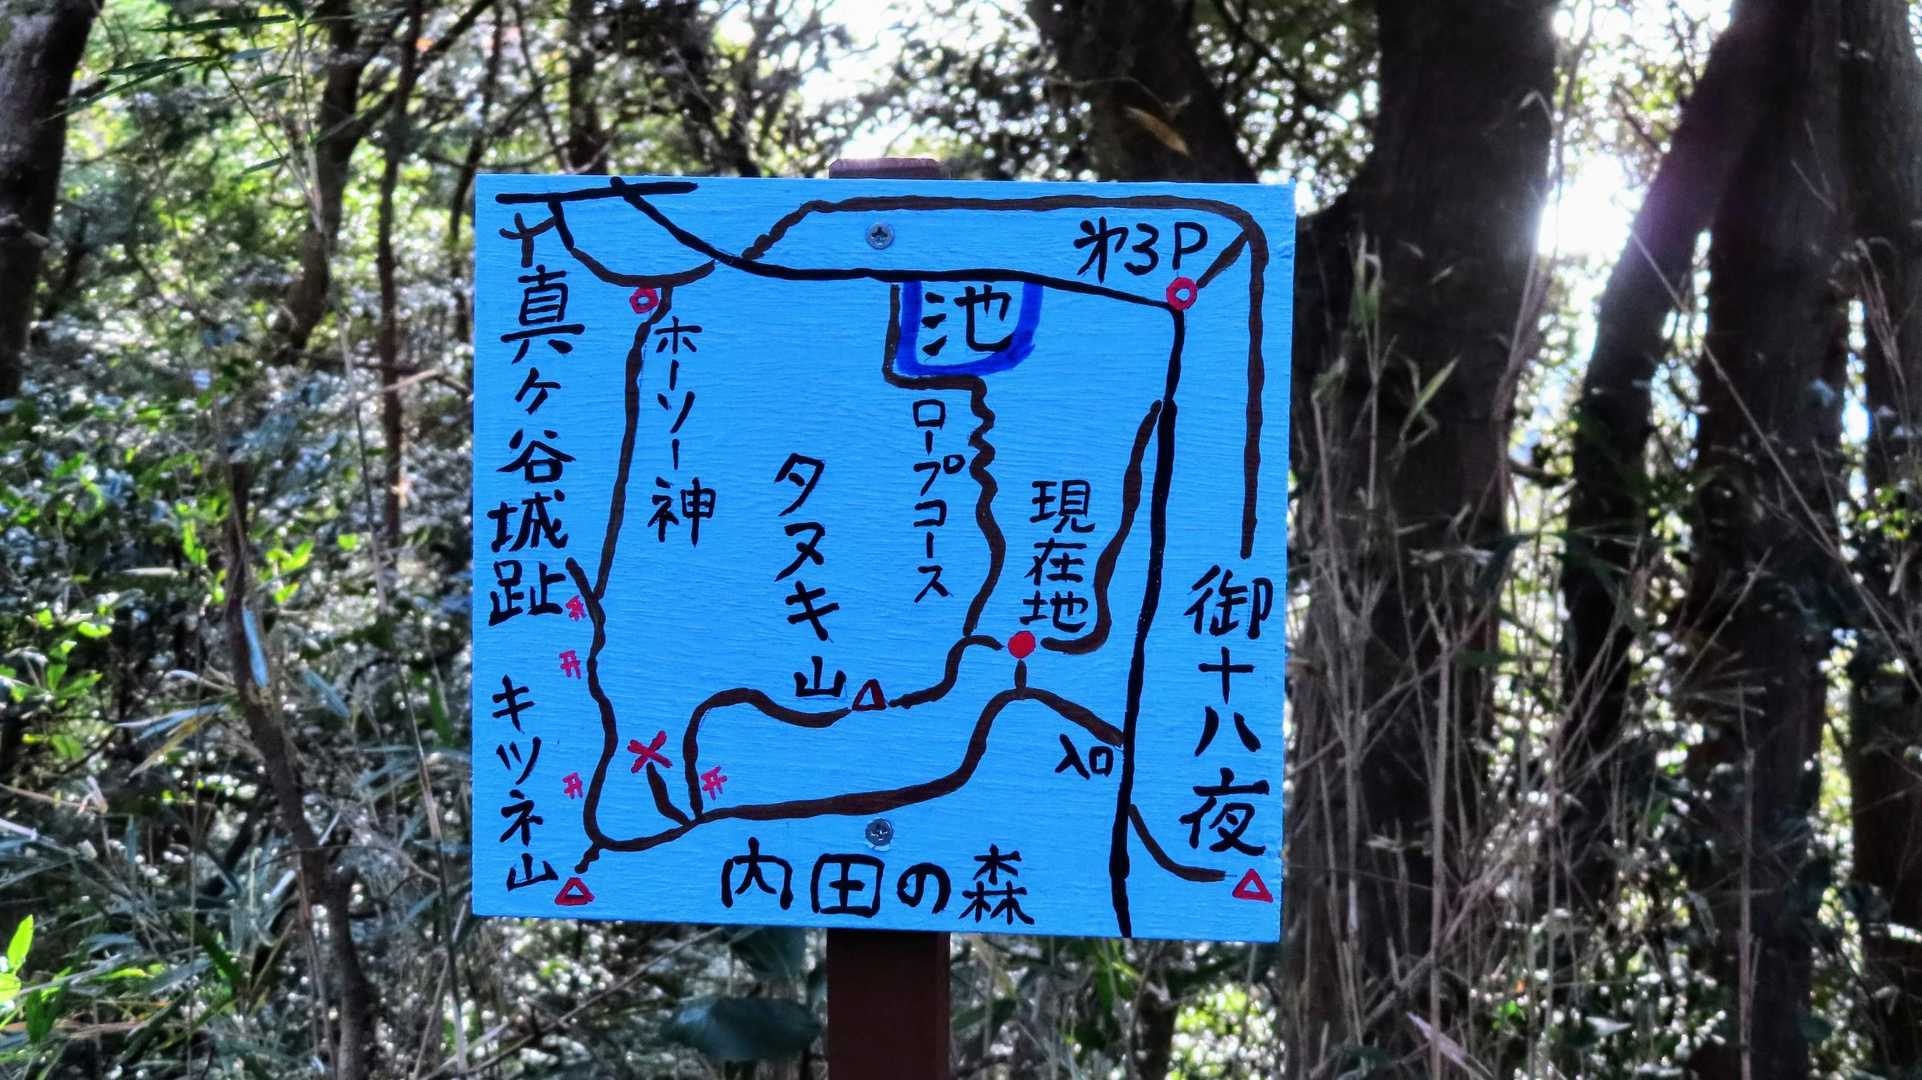 㐧3P
池
真ヶ谷城趾
ホーソー神
ロープコース
タヌキ山
現在地
御十八夜
キツネ山
入口
内田の森